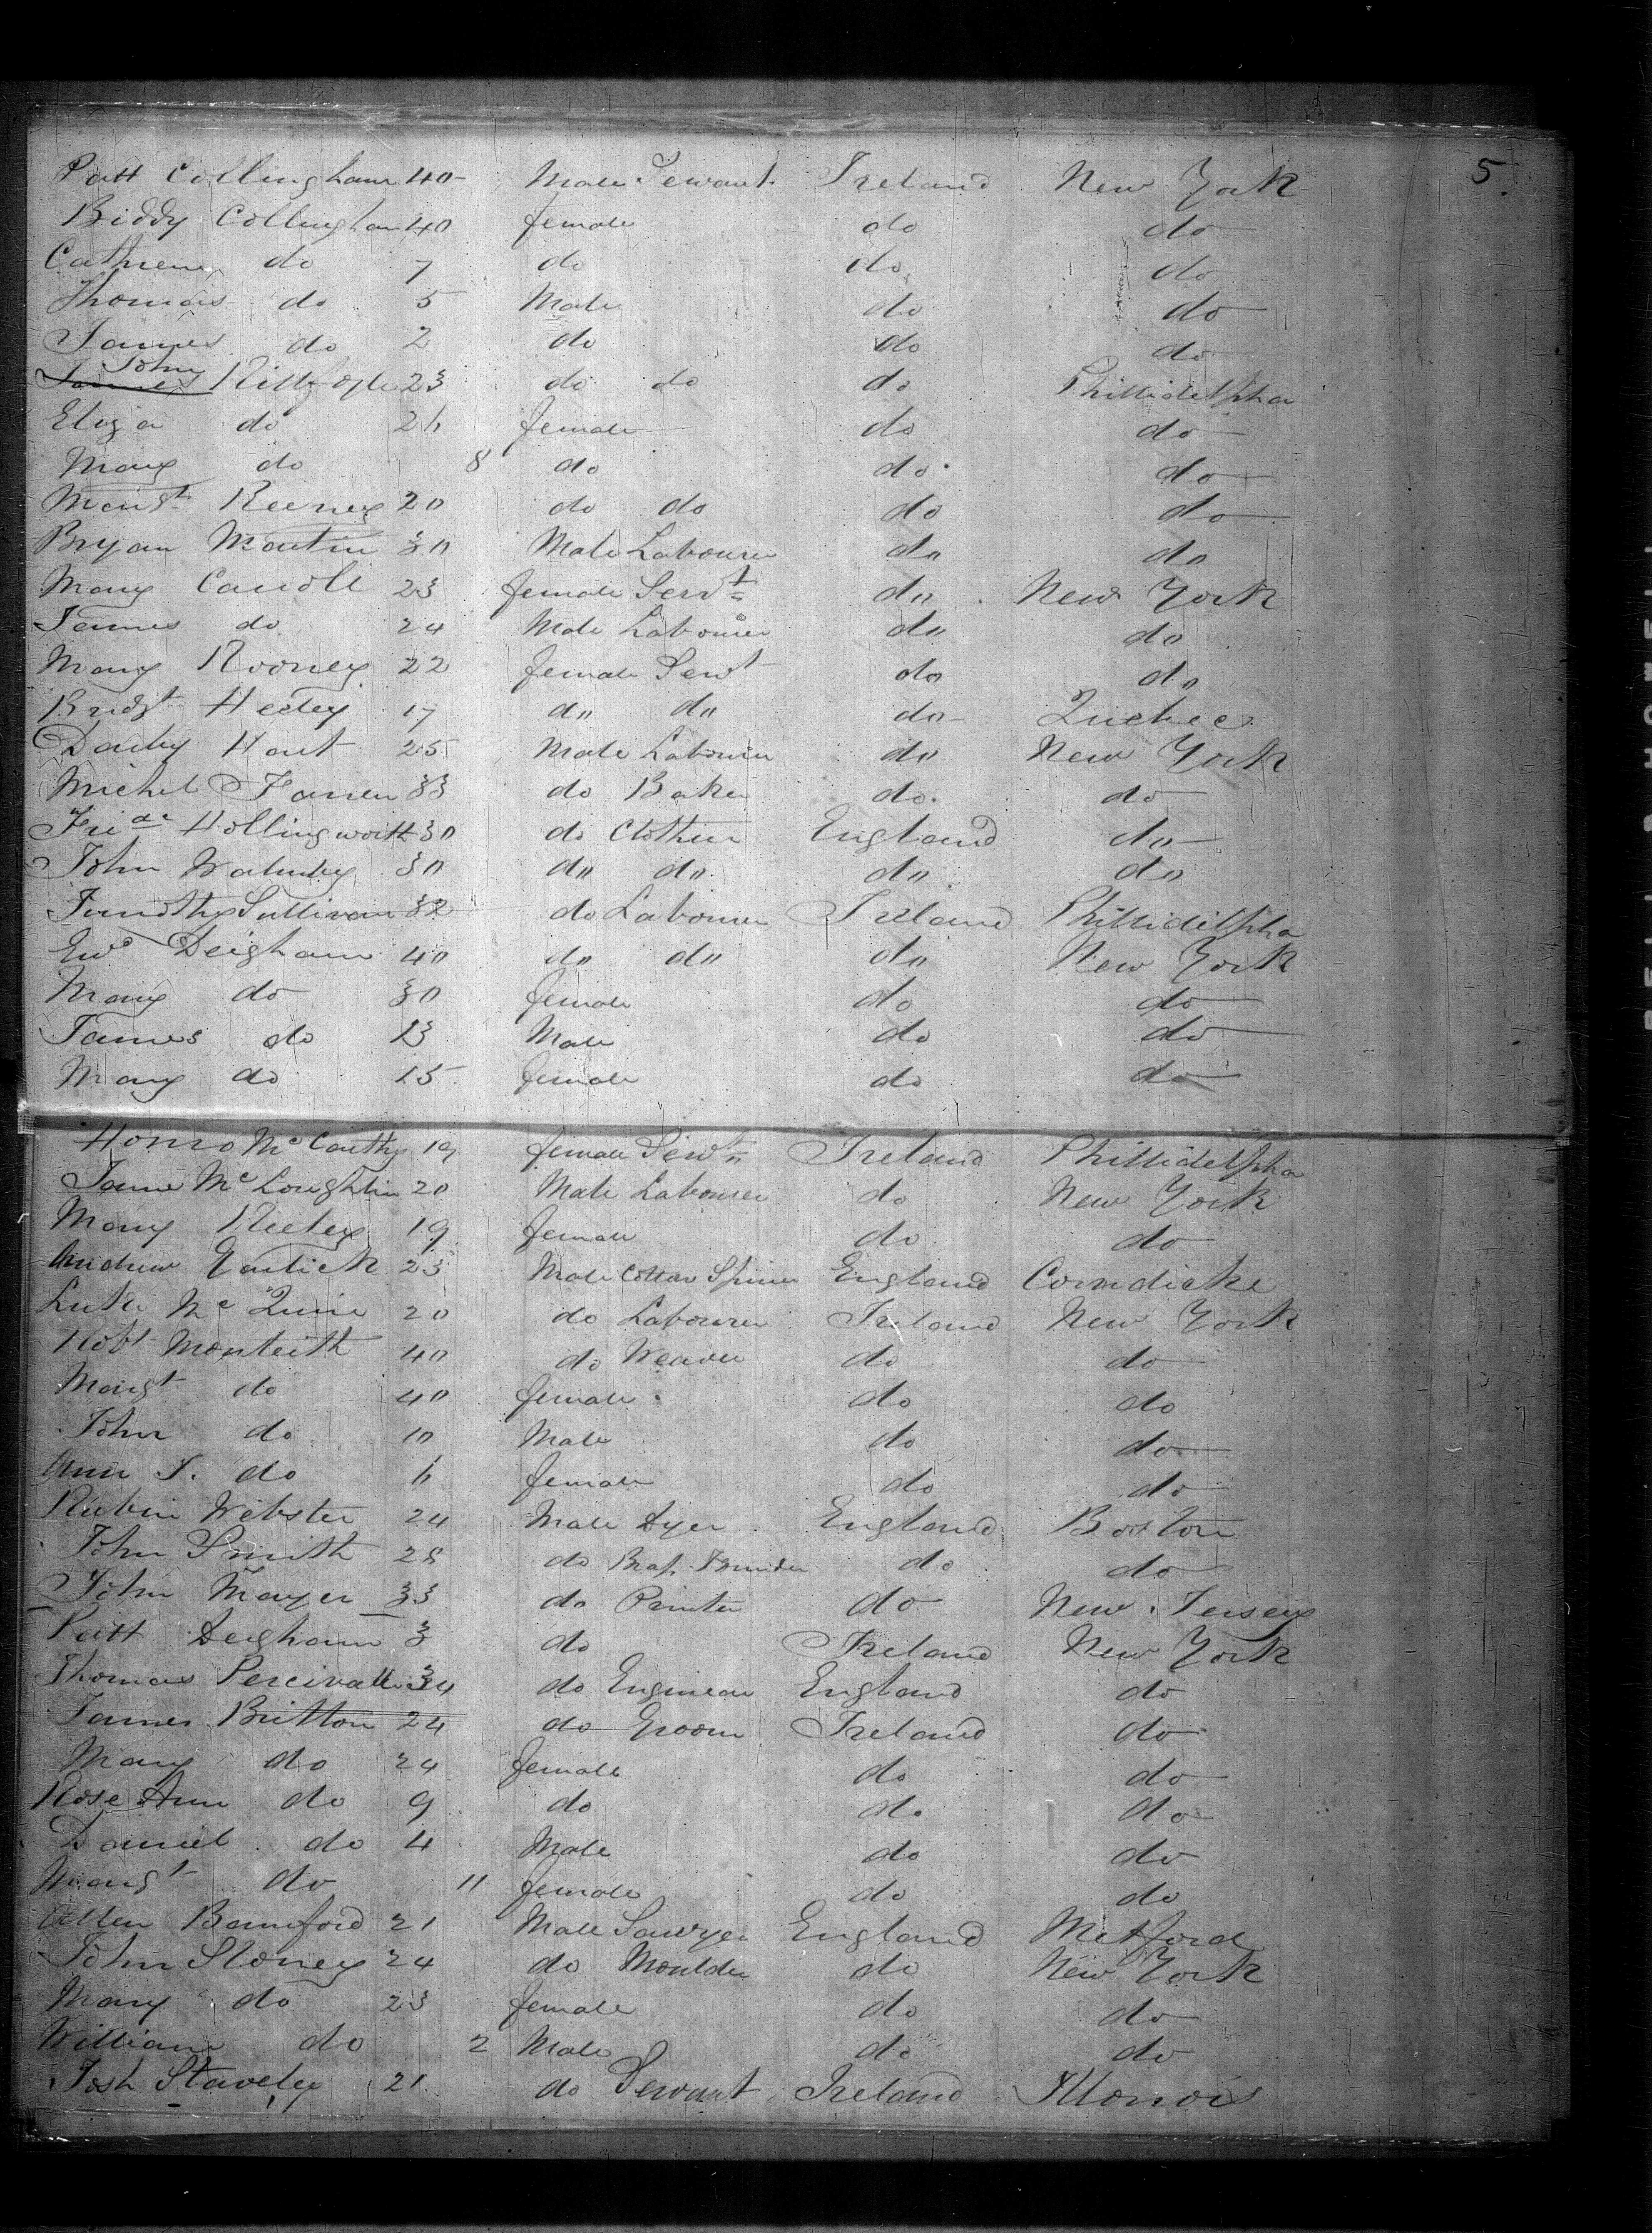 5.
Patt Collingham 40 Male Servant Ireland New York
Biddy Collingham 40 female do do
Cathrene do 7 do do do
Thomas do 5 Male do do
James do 2 do do do
John 23 do do do Phillidelpha
Eliza do 26 female do do
Mary do 8 do do do
Margt Keeney 20 do do do do
Bryan Martin 30 Male Labourer do do
Mary Carroll 23 female Servt do New York
James do 24 Male Labourer do do
Mary Rooney 22 female Servt do do
Bridgt Heeley 17 do do do Quebec
Darby Hart 25 Male Labourer do New York
Michel Farren 33 do Baker do do
Fride Hollingworth 30 do Clothier England do
John Walmsley 30 do do do do
Timothy Sullivan 32 do Labourer Ireland Phillidelpha
Ewd Deigham 40 do do do New York
Mary do 30 female do do
James do 13 Male do do
Mary do 15 female do do
Honro McCarthy 19 female Servt Ireland Phillidelpha
Jame McLoughlin 20 Male Labourer do New York
Mary Rieley 19 female do do
Andrew 23 Male Cotton Spiner England
Luke McQuine 20 do Labourer Ireland New York
Robt Monteith 40 do Weaver do do
Margt do 40 female do do
John do 10 Male do do
Ann J. do 6 female do do
Rubin Webster 24 Male Dyer England Boston
John Smith 28 do Brass Founder do do
John Mayer 33 do Printer do New Jersey
Patt Deigham 3 do Ireland New York
Thomas Percivall 34 do Enginear England do
James Britton 24 do Groom Ireland do
Mary do 24 female do do
Rose Ann do 9 do do do
Daniel do 4 Male do do
Margt do 11 female do do
Allen Bamford 21 Male Sawyer England Metford
John Stoney 24 do Moulder do New York
Mary do 23 female do do
William do 2 Male do do
Josh Staveley 21 do Servant Ireland Illonois